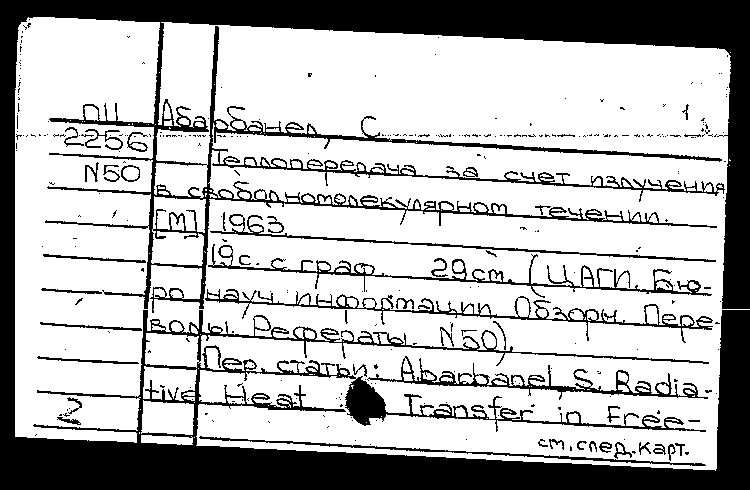 ПII Абарбанел, С 1
2256 Теплопередача за счет излучения
N50 в свободномолекулярном течении.
[М] 1963.
19с. с граф. 29см. (ЦАГИ. Бю-
ро науч информации. Обзоры. Пере-
воды. Рефераты. N50).
Пер. статьи: Abarbanel, S. Radia-
tive Heat Transfer in Free-
2 см. след. карт.